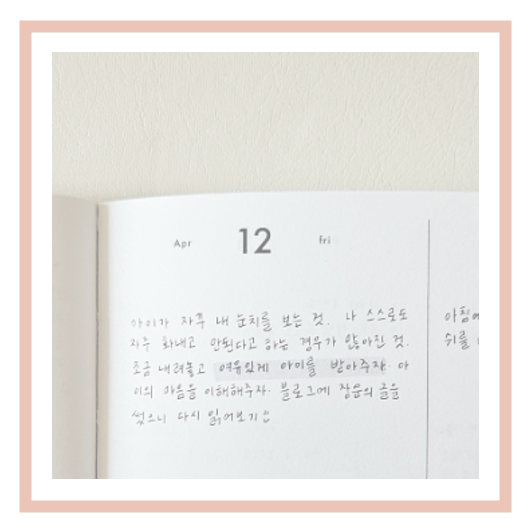 Apr 12 fri
아이가 자주 내 눈치를 보는 것. 나 스스로도
자주 화내고 안된다고 하는 경우가 많아진 것.
조금 내려놓고 여유있게 아이를 받아주자. 아
이의 마음을 이해해주자. 블로그에 장문의 글을
썼으니 다시 읽어보기
아침에
쉬를